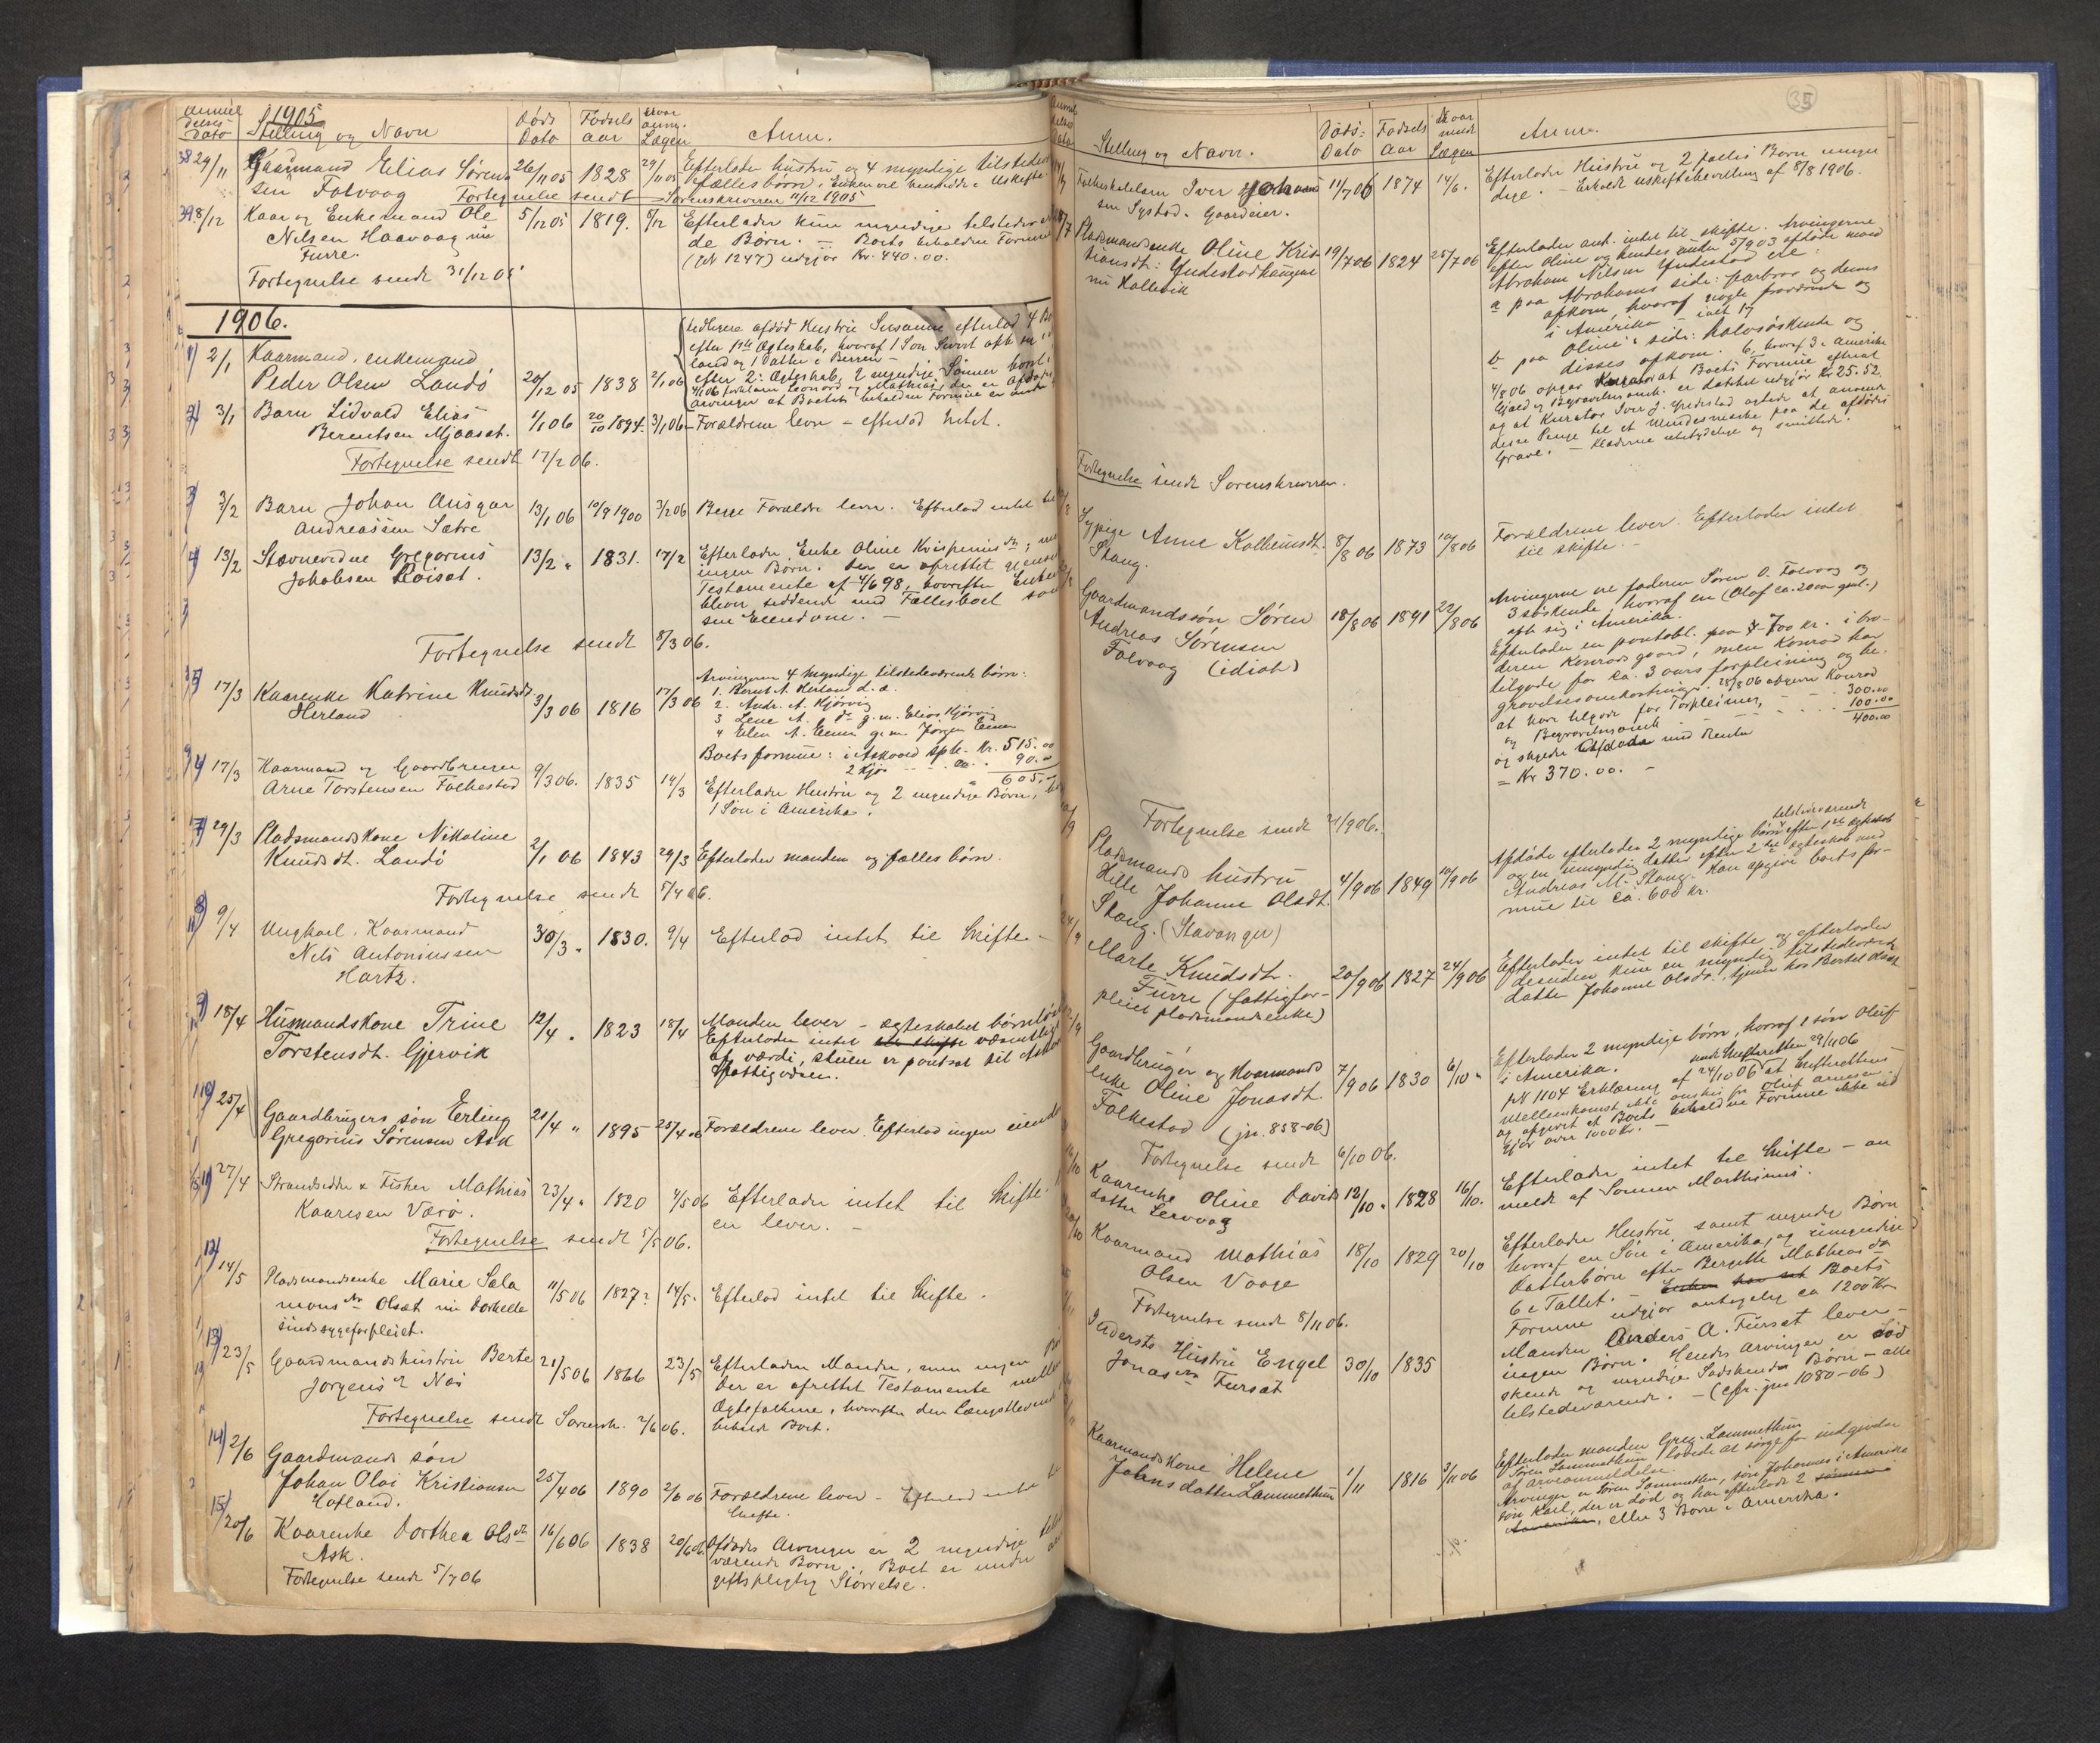 Anmeldelses Dato
1905
Stilling og Navn
Døds Dato
Fødsels aar
Naar anm. Lægen
Anm.
38 29/11 Gaardmand Elias Søren- 26/11 05 1828 29/11 05 Efterlader hustru og 4 myndige tilstedev
sen Folvaag fællesbørn. Enken vil hensidde i Uskifte
Fortegnelse sendt Sorenskriveren 11/12 1905
39 8/12 Kaar og Enkemand Ole 5/12 05 1819. 8/12 Efterlader kun myndige tilstedev
Nilsen Haavaag nu de Børn. – Boets beholdne Formue
Furre. (JN 1247) udgjør Kr. 440.00.
Fortegnelse sendt 31/12 05
1906.
tidligere afdød Hustru Susanne efterlod 4 Bø
efter 1ste Ægteskab, hvoraf 1 Søn Sivert
land og 1 Datter i Berren –
1) 2/1 Kaarmand, enkemand efter 2: Ægteskab 2 myndige Sønner
Peder Olsen Landö 20/12 05 1838 2/1 06
arvinger at Boets beholdne Formue er under
2) 3/1 Barn Sidvald Elias 1/1 06 20/10 1894. 3/1 06 – Forældrene lever – efterlod Intet.
Berentsen Mjaasæt.
Fortegnelse sendt 17/2 06.
3) 3/2 Barn Johan Ansgar 13/1 06 10/9 1900 3/2 06 Begge Forældre lever. Efterlod intet til
Andreassen Sætre
4) 13/2 Stævnevidne Gregorius 13/2 " 1831. 17/2 Efterlader Enke Oline Kvispinusdtr,
Jakobsen Roiset. ingen Børn. Der er oprettet gjensi
Testamente af 4/6 98, hvorefter Enken
bliver siddende med Fællesboet som
sin Eiendom. –
Fortegnelse sendt 8/3 06.
Arvingerne 4 myndige tilstedeværende børn:
5 17/3 Kaarenke Katrine Knudsdt. 3/3 06 1816 17/3 06 1. Bernt A. Herland d.æ.
Herland 2. Andr. A. Kjørvig
3 Lene A. dtr g. m. Elias Kjørvig
4 Elen A. Eimen g. m. Jørgen Eimen
Boets formue: i Askvold Spb. Kr. 515.00
2 Kjør – – – " 90.00
605.00
17/3 Kaarmand og Gaardbruger 9/3 06. 1835 14/3 Efterlader Hustru og 2 myndige Børn,
Arne Torstensen Folkestad 1 Søn i Amerika.
7) 29/3 Pladsmandskone Nikoline 2/1 06 1843 29/3 Efterlader manden og fælles børn.
Knudsdt. Landö
Fortegnelse sendt 5/4 06.
8) 9/4 Ungkarl. Kaarmand 30/3 " 1830. 9/4 Efterlod intet til Skifte –
Nils Antoniussen
Hartz.
9) 18/4 Husmandskone Trine 12/4 " 1823 18/4 Manden lever – ægteskabet børnløst
Torstensdt. Gjervik Efterlader intet til skifte væsentlig
af værdi, stuen er pantsat til Askvold
Fattigvæsen.
10) 25/4 Gaardbrugers søn Erling 21/4 " 1895 25/4 06 Forældrene lever. Efterlod ingen eiende
Gregorius Sørensen Ask
27/4 Strandsidder & Fisker Mathias 23/4 " 1820 4/5 06 Efterlader intet til Skifte.
Kaaresen Værö. en lever. –
Fortegnelse sendt 5/5 06.
12) 14/5 Pladsmandsenke Marie Sala 11/5 06 1827? 14/5. Efterlod intet til Skifte.
monsdtr Olset nu Dorhella
sindssygeforpleiet.
13) 23/5 Gaardmandshustru Berte 21/5 06 1866 23/5 Efterlader Manden, men ingen Bø
Jørgensdtr Næs Der er oprettet Testamente mellem
Ægtefolkene, hvorefter den Længstlevende
Fortegnelse sendt Sorensk. 2/6 06. beholder Boet.
14) 2/6 Gaardmands søn
Johan Olai Kristiansen 25/4 06 1890 2/6 06 Forældrene lever – Efterlod intet
Hofland. Skifte.
15) 20/6 Kaarenke Dorthea Olsdtr 16/6 06 1838 20/6 06. Afdødes Arvinger er 2 myndige
Ask. værende Børn. Boet er under
Fortegnelse sendt 5/7 06 giftspligtig Størrelse.
35
Stilling og Navn.
Døds: Dato
Fødsels Aar
Naar meldt Lægen
Anm.
Folkeskolelærer Iver Johannes 11/7 06 1874 14/6. Efterlader Hustru og 2 fælles Børn umyn
sen Systad. Gaardeier. dige. – Erholdt uskiftebevilling af 8/8 1906.
Pladsmandsenke Oline Kris- 19/7 06 1824 25/7 06 Efterlader ant. intet til skifte. Arvingerne
tiansdt: Yndestadhaugene efter Oline og hendes under 5/9 03 afdøde mand
nu Hallevik Abraham Nilsen Yndestad ere:
a paa Abrahams side: farbror og dennes
afkom, hvoraf nogle fraværende og
i Amerika – ialt 17
b paa Oline's side: halvsøskende og
disses afkom. 6, hvoraf 3 i Amerika
4/8 06 opgav Kurator at Boets Formue efterat
Gjæld og Begravelsesomk. er dækket udgjør Kr 25.52.
og at Kurator Iver J. Yndestad agtede at anvende
disse Penge til et Mindesmærke paa de afdødes
Grave. – Klæderne ubetydelige og smittede.
Fortegnelse sendt Sorenskriveren.
Sypige Anne Kolbeinsdt. 8/8 06 1873 10/8 06 Forældrene lever. Efterlader intet
Stang. til skifte. –
Gaardmandssøn Søren 18/8 06 1891 22/8 06 Arvingerne ere faderen Søren O. Folvaag og
Andreas Sørensen 3 søskende, hvoraf en (Olaf ca. 20 aar gml.)
Folvaag (idiot) oph. sig i Amerika.
Efterlader en pantobl. paa 700 kr. i bro-
deren Konrads gaard, men Konrad har
tilgode for ca. 3 aars forpleining og be-
gravelsesomkostninger. 28/8 06 opgiver Konrad
at have tilgode for Forpleining – – – 300.00
og Begravelsesomk – – – – 100.00
400.00
og skyldte Afdøde med Renter
= Kr 370.00. –
Fortegnelse sendt 21/9 06.
Pladsmands hustru 4/9 06 1849 10/9 06 Afdøde efterlader 2 myndige tilstedeværende børn efter 1ste ægteskab
Helle Johanne Olsdt. og en umyndig datter efter 2det ægteskab med
Stang. (Stavanger) Andreas M. Stang. Kan opgive boets for-
mue til ca. 600 kr.
Marte Knudsdt. 20/9 06 1827 24/9 06 Efterlader intet til skifte og efterlader
Furre (fattigfor- desuden kun en myndig tilstedeværende
pleiet pladsmandsenke) datter Johanne Olsdt., tjener hos Bertel
Gaardbruger og Kaarmands 7/9 06 1830 6/10 " Efterlader 2 myndige børn, hvoraf 1 søn Oluf
enke Oline Jonasdt. i Amerika.
Folkestad (jn. 858-06) JN 1104 Erklæring af 24/10 06 at Skifterettens
Mellemkomst ikke ønskes fra Oluf Arnesen
og opgivet at Boets beholdne Formue ikke ud
gjør over 1000 Kr. –
Fortegnelse sendt 6/10 06.
Kaarenke Oline Davids 12/10 " 1828 16/10. Efterlader intet til Skifte – an
datter Lervaag meldt af Sønnen Marthinus.
Kaarmand Mathias 18/10 1829 20/10 Efterlader Hustru samt myndige Børn
Olsen Vaage hvoraf en Søn i Amerika, og umyndige
Datterbørn efter Bergitte Mathiasdtr
6 i Tallet. – Boets
Formue udgjør antagelig ca 1200 Kr
Fortegnelse sendt 8/11 06.
Inderste Hustru Engel 30/10 1835 Manden Anders A. Furset lever –
Jonasdtr Furset ingen Børn. Hendes Arvinger er Sød
skende og myndige Sødskendes Børn – alle
tilstedeværende. – (cfr. jn 1080–06)
Kaarmandskone Helene 1/11 1816 3/11 06 Efterlader manden Greg. Lammethun
Johns datter Lammethun Søren Lammethun lovede at sørge for indgivelse
af Arveanmeldelse.
Arvinger er Søren Lammethun, søn Johannes i Amerika
søn Karl, der er død og har efterladt 2 sønner i
Amerika, eller 3 Børn i Amerika.